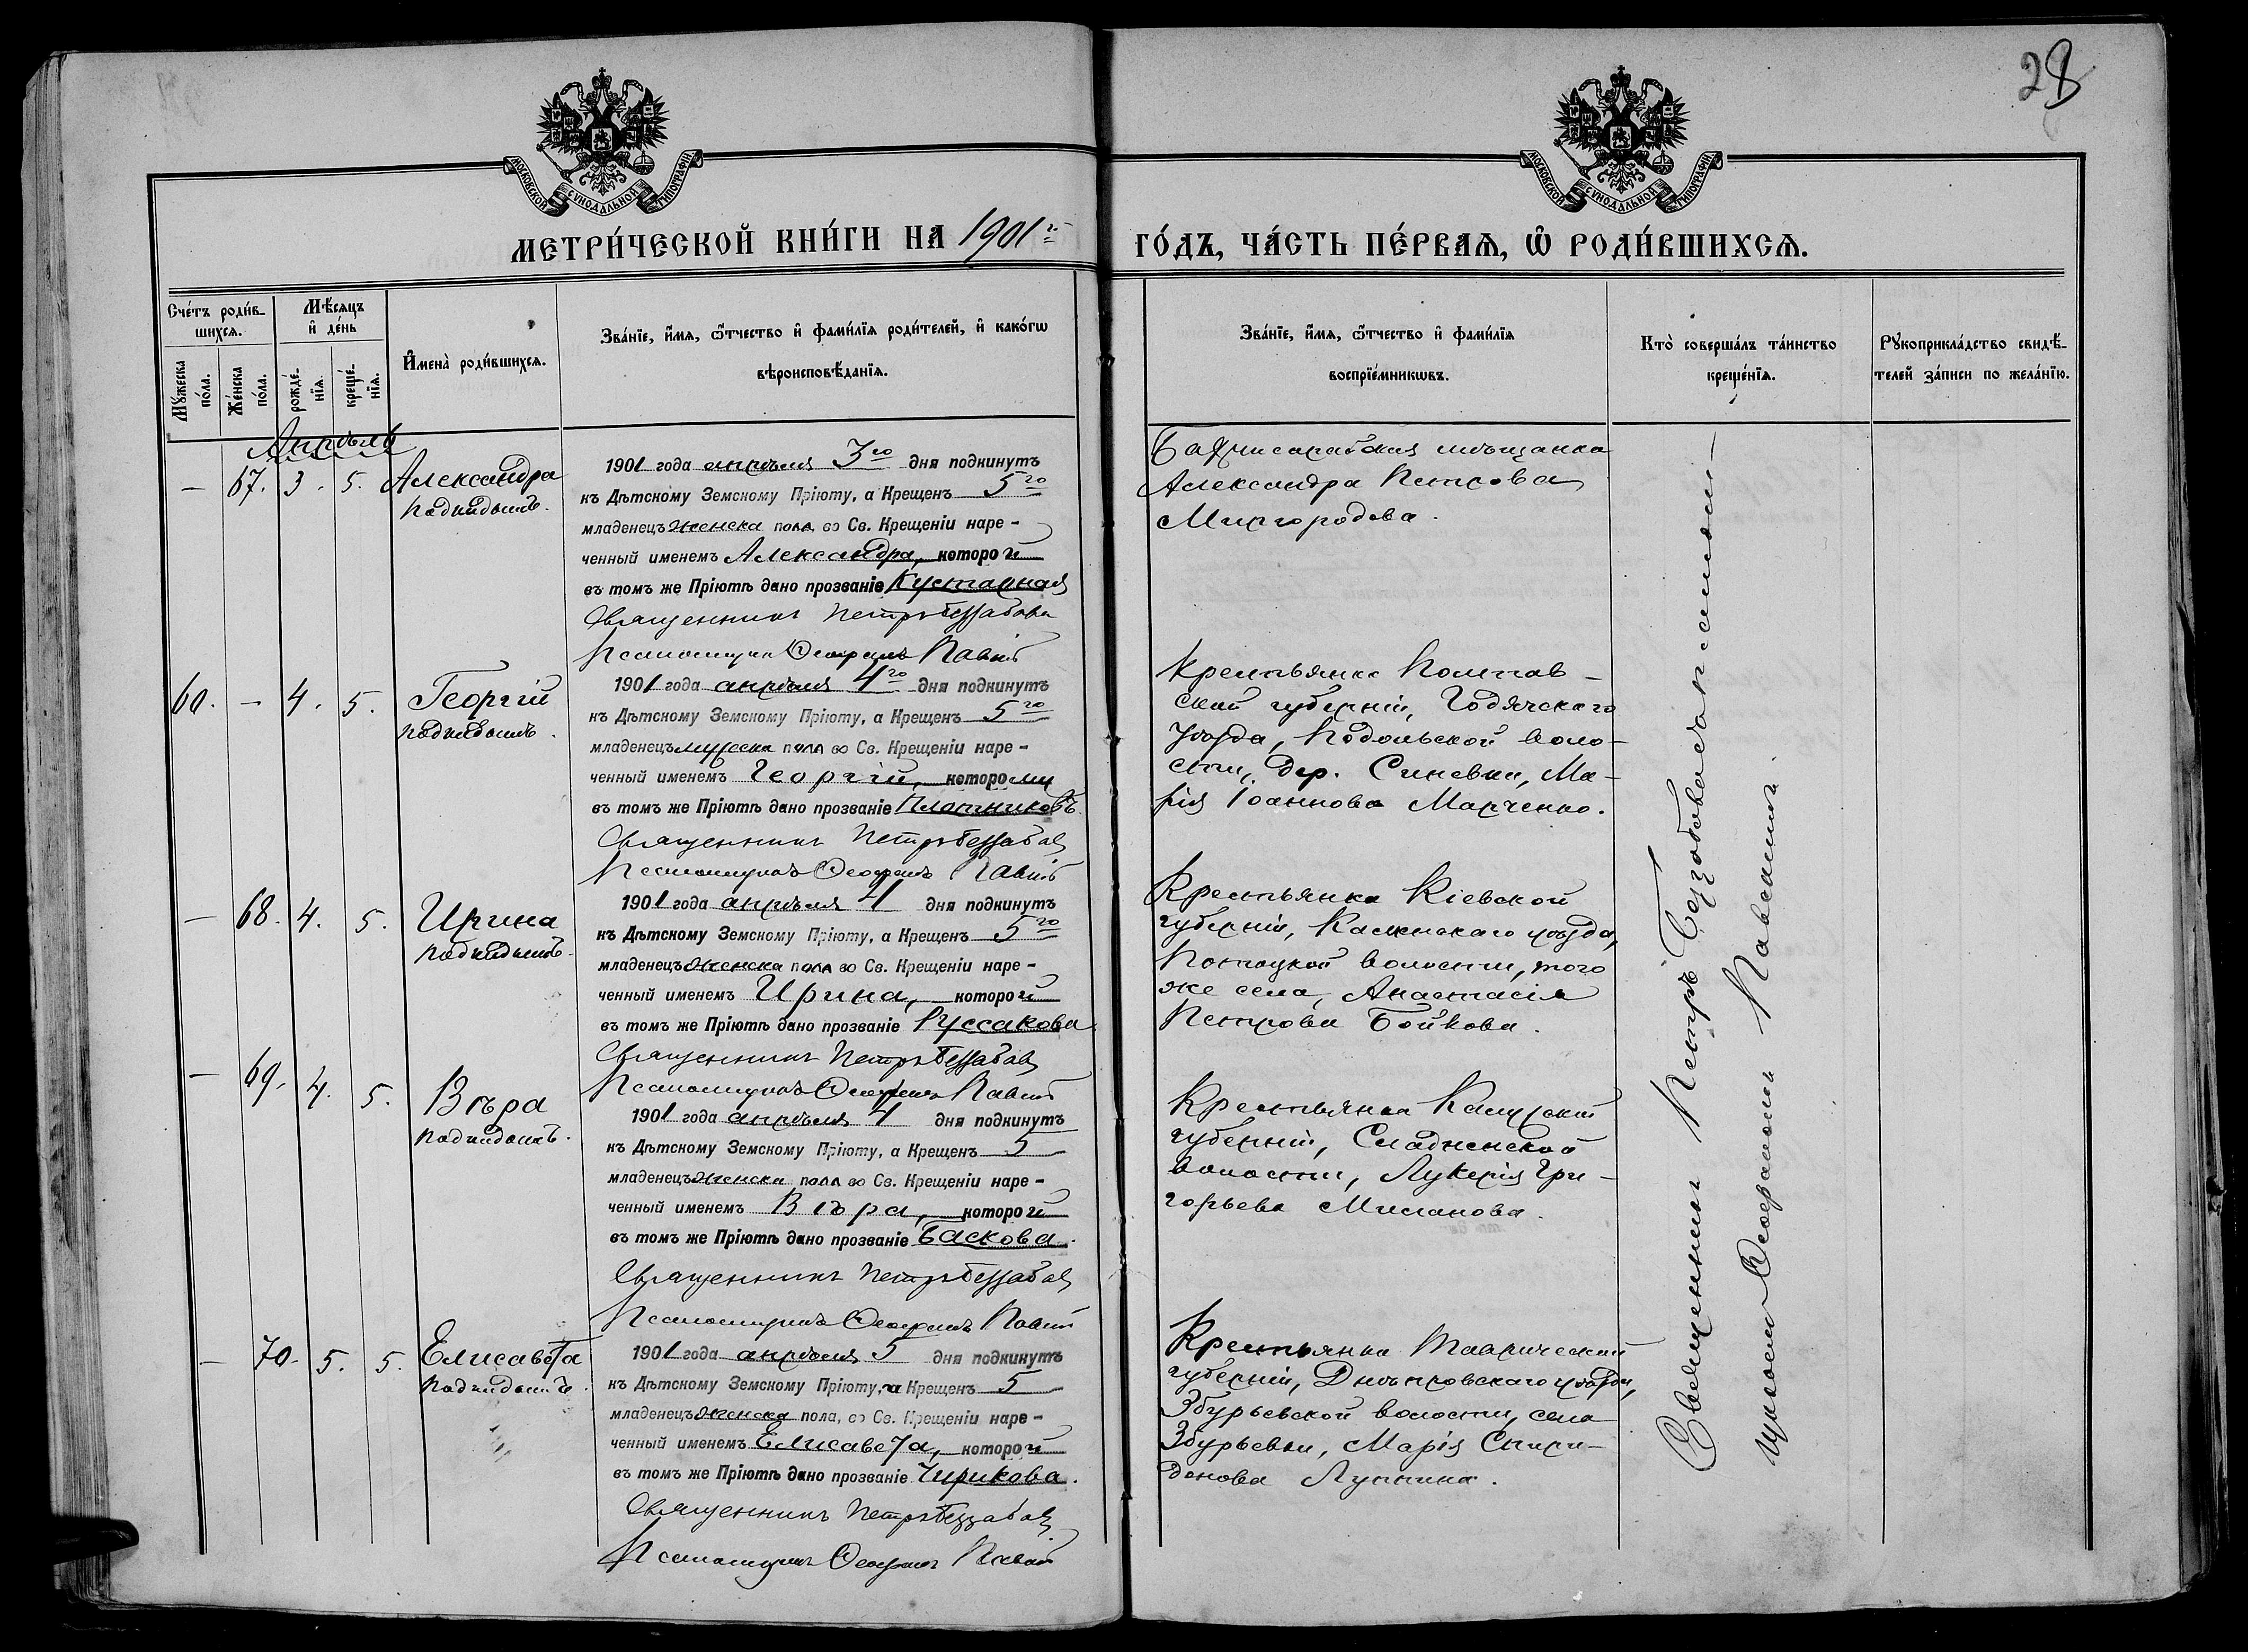 28
МОСКОВСКОЙ СѴНОДАЛЬНОЙ ТИПОГРАФІИ
МОСКОВСКОЙ СѴНОДАЛЬНОЙ ТИПОГРАФІИ
МЕТРИ́ЧЕСКОЙ КНИ́ГИ НА 1901й
ГО́ДЪ, ЧА́СТЬ ПЕ́РВАѦ, Ѡ РОДИ́ВШИХСѦ.
Сче́тъ роди́в-
шихсѧ.
Мѣ́сѧцъ
и҆ де́нь
Мꙋ́жеска
по́ла.
Же́нска
по́ла.
рожде́-
нїѧ.
креще́-
нїѧ.
И҆мена̀ роди́вшихсѧ.
Зва́нїе, и҆́мѧ, ѻ҆́тчество и҆ фами́лїѧ роди́телей, и҆ како́гѡ
вѣроисповѣ́данїѧ.
Зва́нїе, и҆́мѧ, ѻ҆́тчество и҆ фами́лїѧ
воспрїе́мникѡвъ.
Кто̀ соверша́лъ та́инство
креще́нїѧ.
Рꙋкоприкла́дство свидѣ́-
телей за́писи по жела́нїю.
Апрѣль
— 67. 3. 5. Александра
подкидышъ.
1901 года апрѣля 3го дня подкинутъ
къ Дѣтскому Земскому Пріюту, а Крещенъ 5го
младенецъ женска пола, во Св. Крещеніи наре-
ченный именемъ Александра, которой
въ томъ же Пріютѣ дано прозваніе Кустарная
Священникъ Петръ
Псаломщикъ
Бахчисарайская мѣщанка
Александра Петрова
Миргородова.
60. — 4. 5. Георгій
подкидышъ.
1901 года апрѣля 4го дня подкинутъ
къ Дѣтскому Земскому Пріюту, а Крещенъ 5го
младенецъ мужеска пола во Св. Крещеніи наре-
ченный именемъ Георгій, которому
въ томъ же Пріютѣ дано прозваніе Плотниковъ
Священникъ Петръ
Псаломщикъ
Крестьянка Полтав-
ской губерніи, Годячскаго
уѣзда, Подольской воло-
сти, дер. Синевки, Ма-
рія Іоаннова Марченко.
— 68. 4. 5. Ирина
подкидышъ.
1901 года апрѣля 4 дня подкинутъ
къ Дѣтскому Земскому Пріюту, а Крещенъ 5го
младенецъ женска пола во Св. Крещеніи наре-
ченный именемъ Ирина, которой
въ томъ же Пріютѣ дано прозваніе Руссакова
Священникъ Петръ
Псаломщикъ
Крестьянка Кіевской
губерніи, уѣзда,
волости, того
же села, Анастасія
Петрова Бойкова.
— 69. 4. 5. Вѣра
подкидышъ.
1901 года апрѣля 4 дня подкинутъ
къ Дѣтскому Земскому Пріюту, а Крещенъ 5
младенецъ женска пола во Св. Крещеніи наре-
ченный именемъ Вѣра, которой
въ томъ же Пріютѣ дано прозваніе Баскова.
Священникъ Петръ
Псаломщикъ
Крестьянка
губерніи,
волости, Лукерія Гри-
горьева Миланова.
— 70. 5. 5. Елисавета
подкидышъ.
1901 года апрѣля 5 дня подкинутъ
къ Дѣтскому Земскому Пріюту, а Крещенъ 5
младенецъ женска пола, во Св. Крещеніи наре-
ченный именемъ Елисавета, которой
въ томъ же Пріютѣ дано прозваніе Чирикова.
Священникъ Петръ
Псаломщикъ
Крестьянка Таврической
губерніи, Днѣпровскаго уѣзда,
Збурьевской волости, села
Збурьевки, Марія Спири-
донова Лупина.
Священникъ Петръ